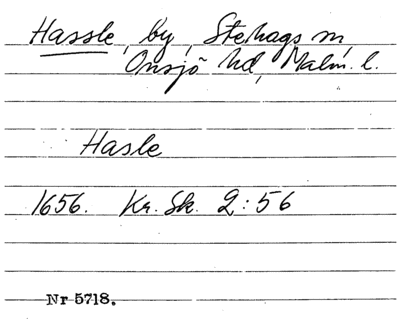 Hassle, by, Stehags sn,
Onsjö hd, Malm. l.
Hasle
1656. Kr. Sk. 2:56
Nr 5718.